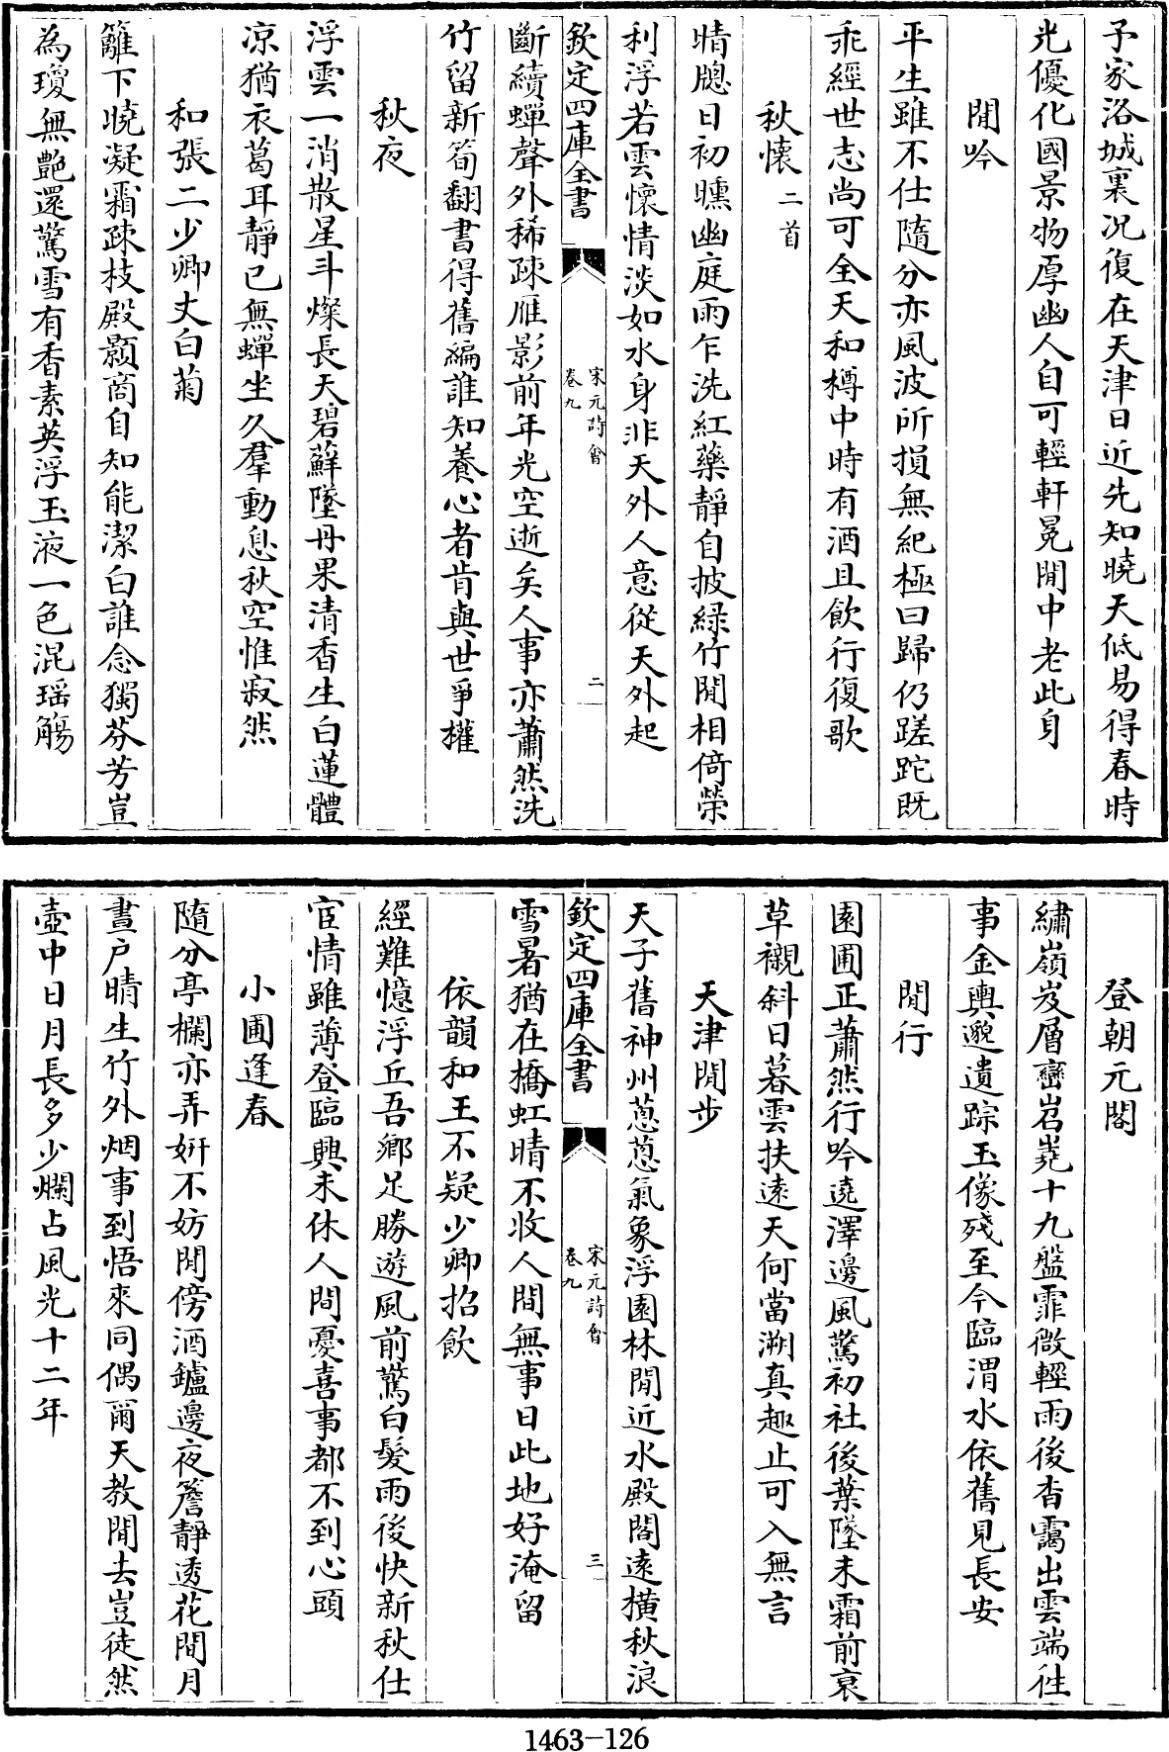 予家洛城裏况復在天津日近先知曉天低易得春時
光優化國景物厚幽人自可輕軒冕閒中老此身
閒吟
平生雖不仕隨分亦風波所損無紀極曰歸仍蹉跎既
乖經世志尚可全天和樽中時有酒且飲行復歌
秋懷二首
晴牎日初曛幽庭雨乍洗紅藥靜自披綠竹閒相倚榮
利浮若雲懷情淡如水身非天外人意從天外起
欽定四庫全書
宋元詩會
卷九
二
斷續蟬聲外稀疎雁影前年光空逝矣人事亦蕭然洗
竹留新筍翻書得舊編誰知養心者肯與世爭權
秋夜
浮雲一消散星斗燦長天碧蘚墜丹果清香生白蓮體
凉猶衣葛耳靜已無蟬坐久羣動息秋空惟寂然
和張二少卿丈白菊
籬下曉凝霜疎枝殿顥商自知能潔白誰念獨芬芳豈
為瓊無艷還驚雪有香素英浮玉液一色混瑶觴
登朝元閣
繡嶺岌層巒岧嶤十九盤霏微輕雨後杳靄出雲端徃
事金輿邈遺踪玉像殘至今臨渭水依舊見長安
閒行
園圃正蕭然行吟遶澤邊風驚初社後葉墜未霜前衰
草襯斜日暮雲扶遠天何當溯真趣止可入無言
天津閒步
天子舊神州蔥蔥氣象浮園林閒近水殿閣遠橫秋浪
欽定四庫全書
宋元詩會
卷九
三
雪暑猶在橋虹晴不收人間無事日此地好淹留
依韻和王不疑少卿招飲
經難憶浮丘吾鄉足勝遊風前驚白髮雨後快新秋仕
宦情雖薄登臨興未休人間憂喜事都不到心頭
小圃逢春
隨分亭欄亦弄妍不妨閒傍酒鑪邊夜簷靜透花間月
晝户晴生竹外烟事到悟來同偶爾天教閒去豈徒然
壺中日月長多少爛占風光十二年
1463-126